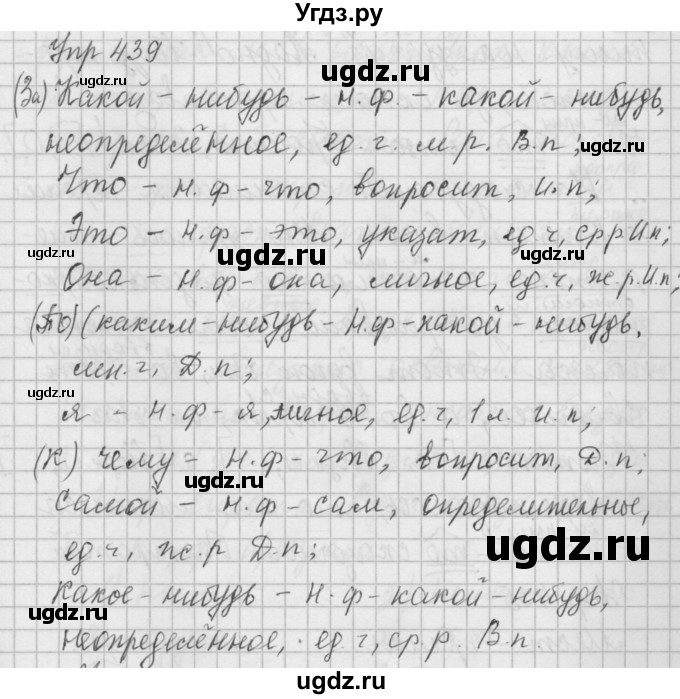 Угдз.ру
Упр 439
(За) Какой-нибудь - н.ф. - какой-нибудь,
неопределённое, ед.ч. м.р. В.п;
Что - н.ф - что, вопросит, И.п;
Это - н.ф - это, указат, ед.ч, ср.р И.п;
Она - н.ф - она, личное, ед.ч, ж.р.И.п;
(По) (каким-нибудь - н.ф - какой-нибудь.
мн.ч, Д.п;
я - н.ф - я, личное, ед.ч, 1 л. И.п;
(К) чему - н.ф - что, вопросит, Д.п;
самой - н.ф - сам, определительные,
ед.ч, ж.р Д.п;
какое-нибудь - н.ф - какой-нибудь,
неопределённое, ед.ч, ср.р. В.п.
ugdz.ru
ugdz.ru
ugdz.ru
ugdz.ru
ugdz.ru
ugdz.ru
ugdz.ru
ugdz.ru
ugdz.ru
ugdz.ru
ugdz.ru